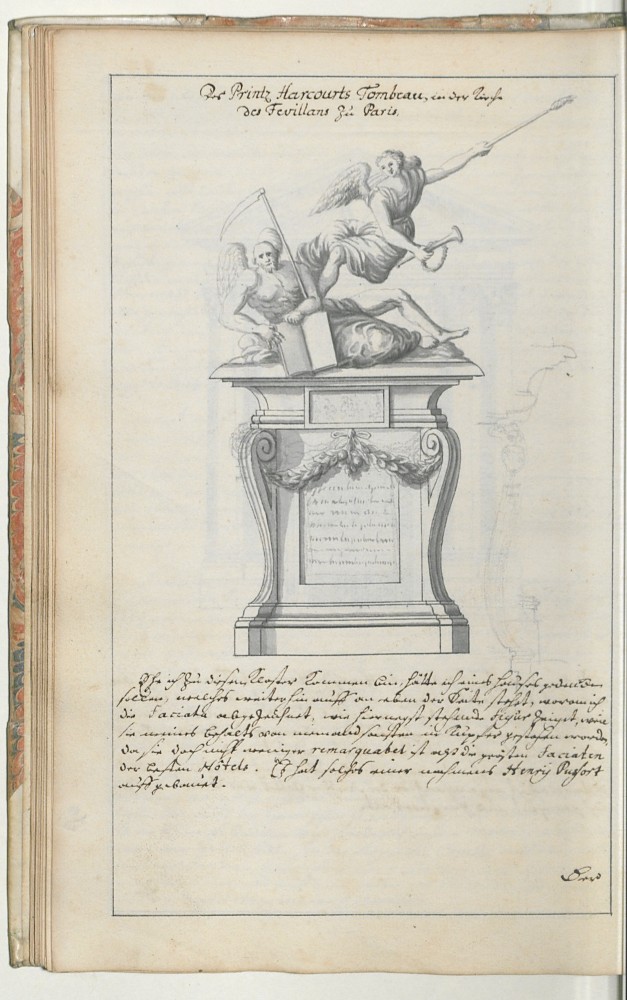 Des Printz Harcourts Tombeau, in der Kirche
des Fevillans zu Paris.
Ehe ich zu diesem Closter kommen bin, hätte ich eines Hauses gedencken
sollen, welches weiter hin auff an eben der Seite stehet, wovon ich
die Faciata abgezeichnet, wie hiernechst stehende Figur zeiget, weil
sie meines behalts von niemand sonsten in Kupffer gestochen worden,
da sie doch nicht weniger remarquabel ist als die grösten Faciaten
der besten Hôtels. Es hat solches einer nahmens Henry Pussort
auffgebauet.
Der